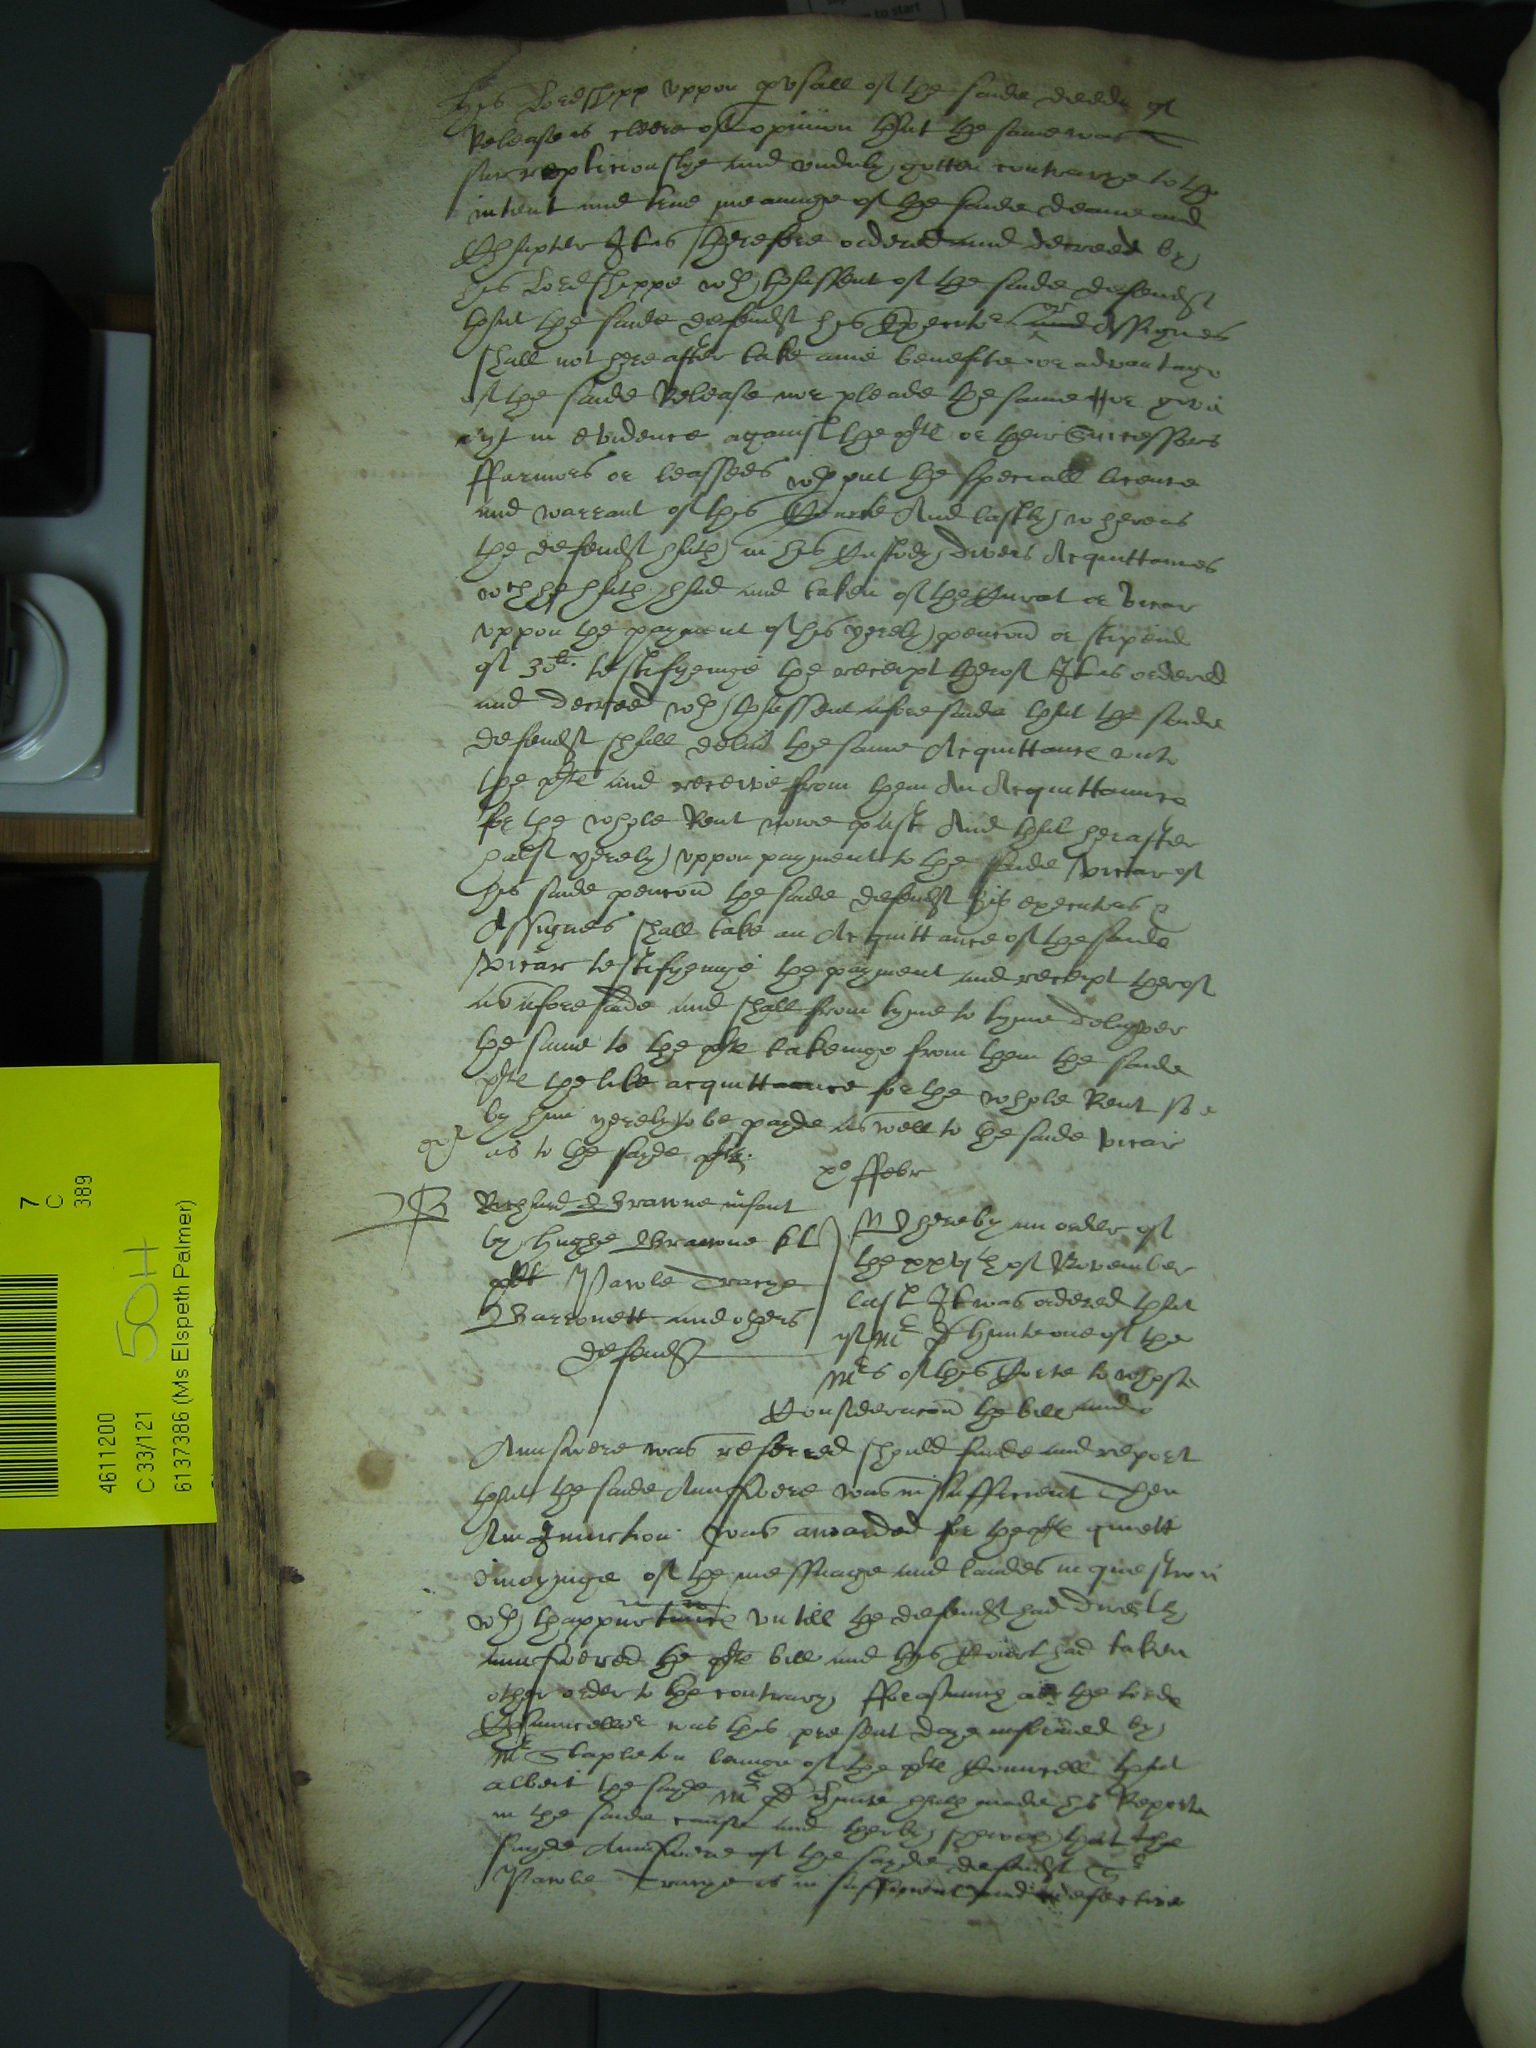 his Lordshipp vppon pvsall of the saide deede of
Release is cleere of opinion that the same was
surrepticiouslye and vnduly gotten contrarye to the
intent and true meaninge of the saide deane and
Chapter It is therefore ordered and decreed by
his Lordshippe wth thassent of the saide defendt
that the saide defendt his Executors and or Assignes
shall not hereafter take anie benefite or advantage
of the saide Release nor pleade the same or give
yt in evidence against the plte or their Successors
ffarmors or leassees wthout the speciall licence
and warrant of this Courte And lastly whereas
the defendt hath in his Custody divers Acquittances
wch he hath had and taken of the Curat or vicar
vppon the payment of his yerely pencon or stipend
of 30li. testifyenge the receipt therof It is ordered
and decreed wth thassent aforesaide that the saide
defendt shall deliver the same Acquittance vnto
the plte and receive from them An Acquittance
for the whole Rent nowe past And that herafter
halfe yerely vppon payment to the saide vicar of
his saide pencon the saide defendt his executors &
Assignes shall take an Acquittance of the saide
vicar testifyenge the payment and receipt therof
as aforesaide and shall from tyme to tyme deliver
the same to the plte takeinge from them the saide
plte the like acquittance for the whole Rent so
by him yerely to be payde as well to the saide vicar
as to the sayde plte.
po ffebr
B
Richard Brawne infant
by Hughe Brawne kt
plt Pawle Tracye
Barronett and others
defendts
Whereby an order of
the xxvjth of November
last It was ordered that
yf Mr Dr Hunt one of the
Mrs of this Corte to whose
Consideracon the bill and
Aunswere was referred should finde and report
that the saide Aunswere was insufficient Then
An Iniunction was awarded for the plte quiett
enioyinge of the messuage and landes in question
wth thappurtnnce vntill the defendt had directly
aunswered the plte bill and this Court had taken
other order to the contrary fforasmuch as the lorde
Chauncellor was this present daye informed by
Mr Stapleton beinge of the plte Councell that
albeit the sayde Mr Dr Hunt hath made his Reporte
in the saide cause and therby shewed that the
sayde Aunswere of the sayde defendt Sr
Pawle Tracye is insufficient and defective
4611200
C 33/121
6137386 (Ms Elspeth Palmer)
50H
7
C
389
to start